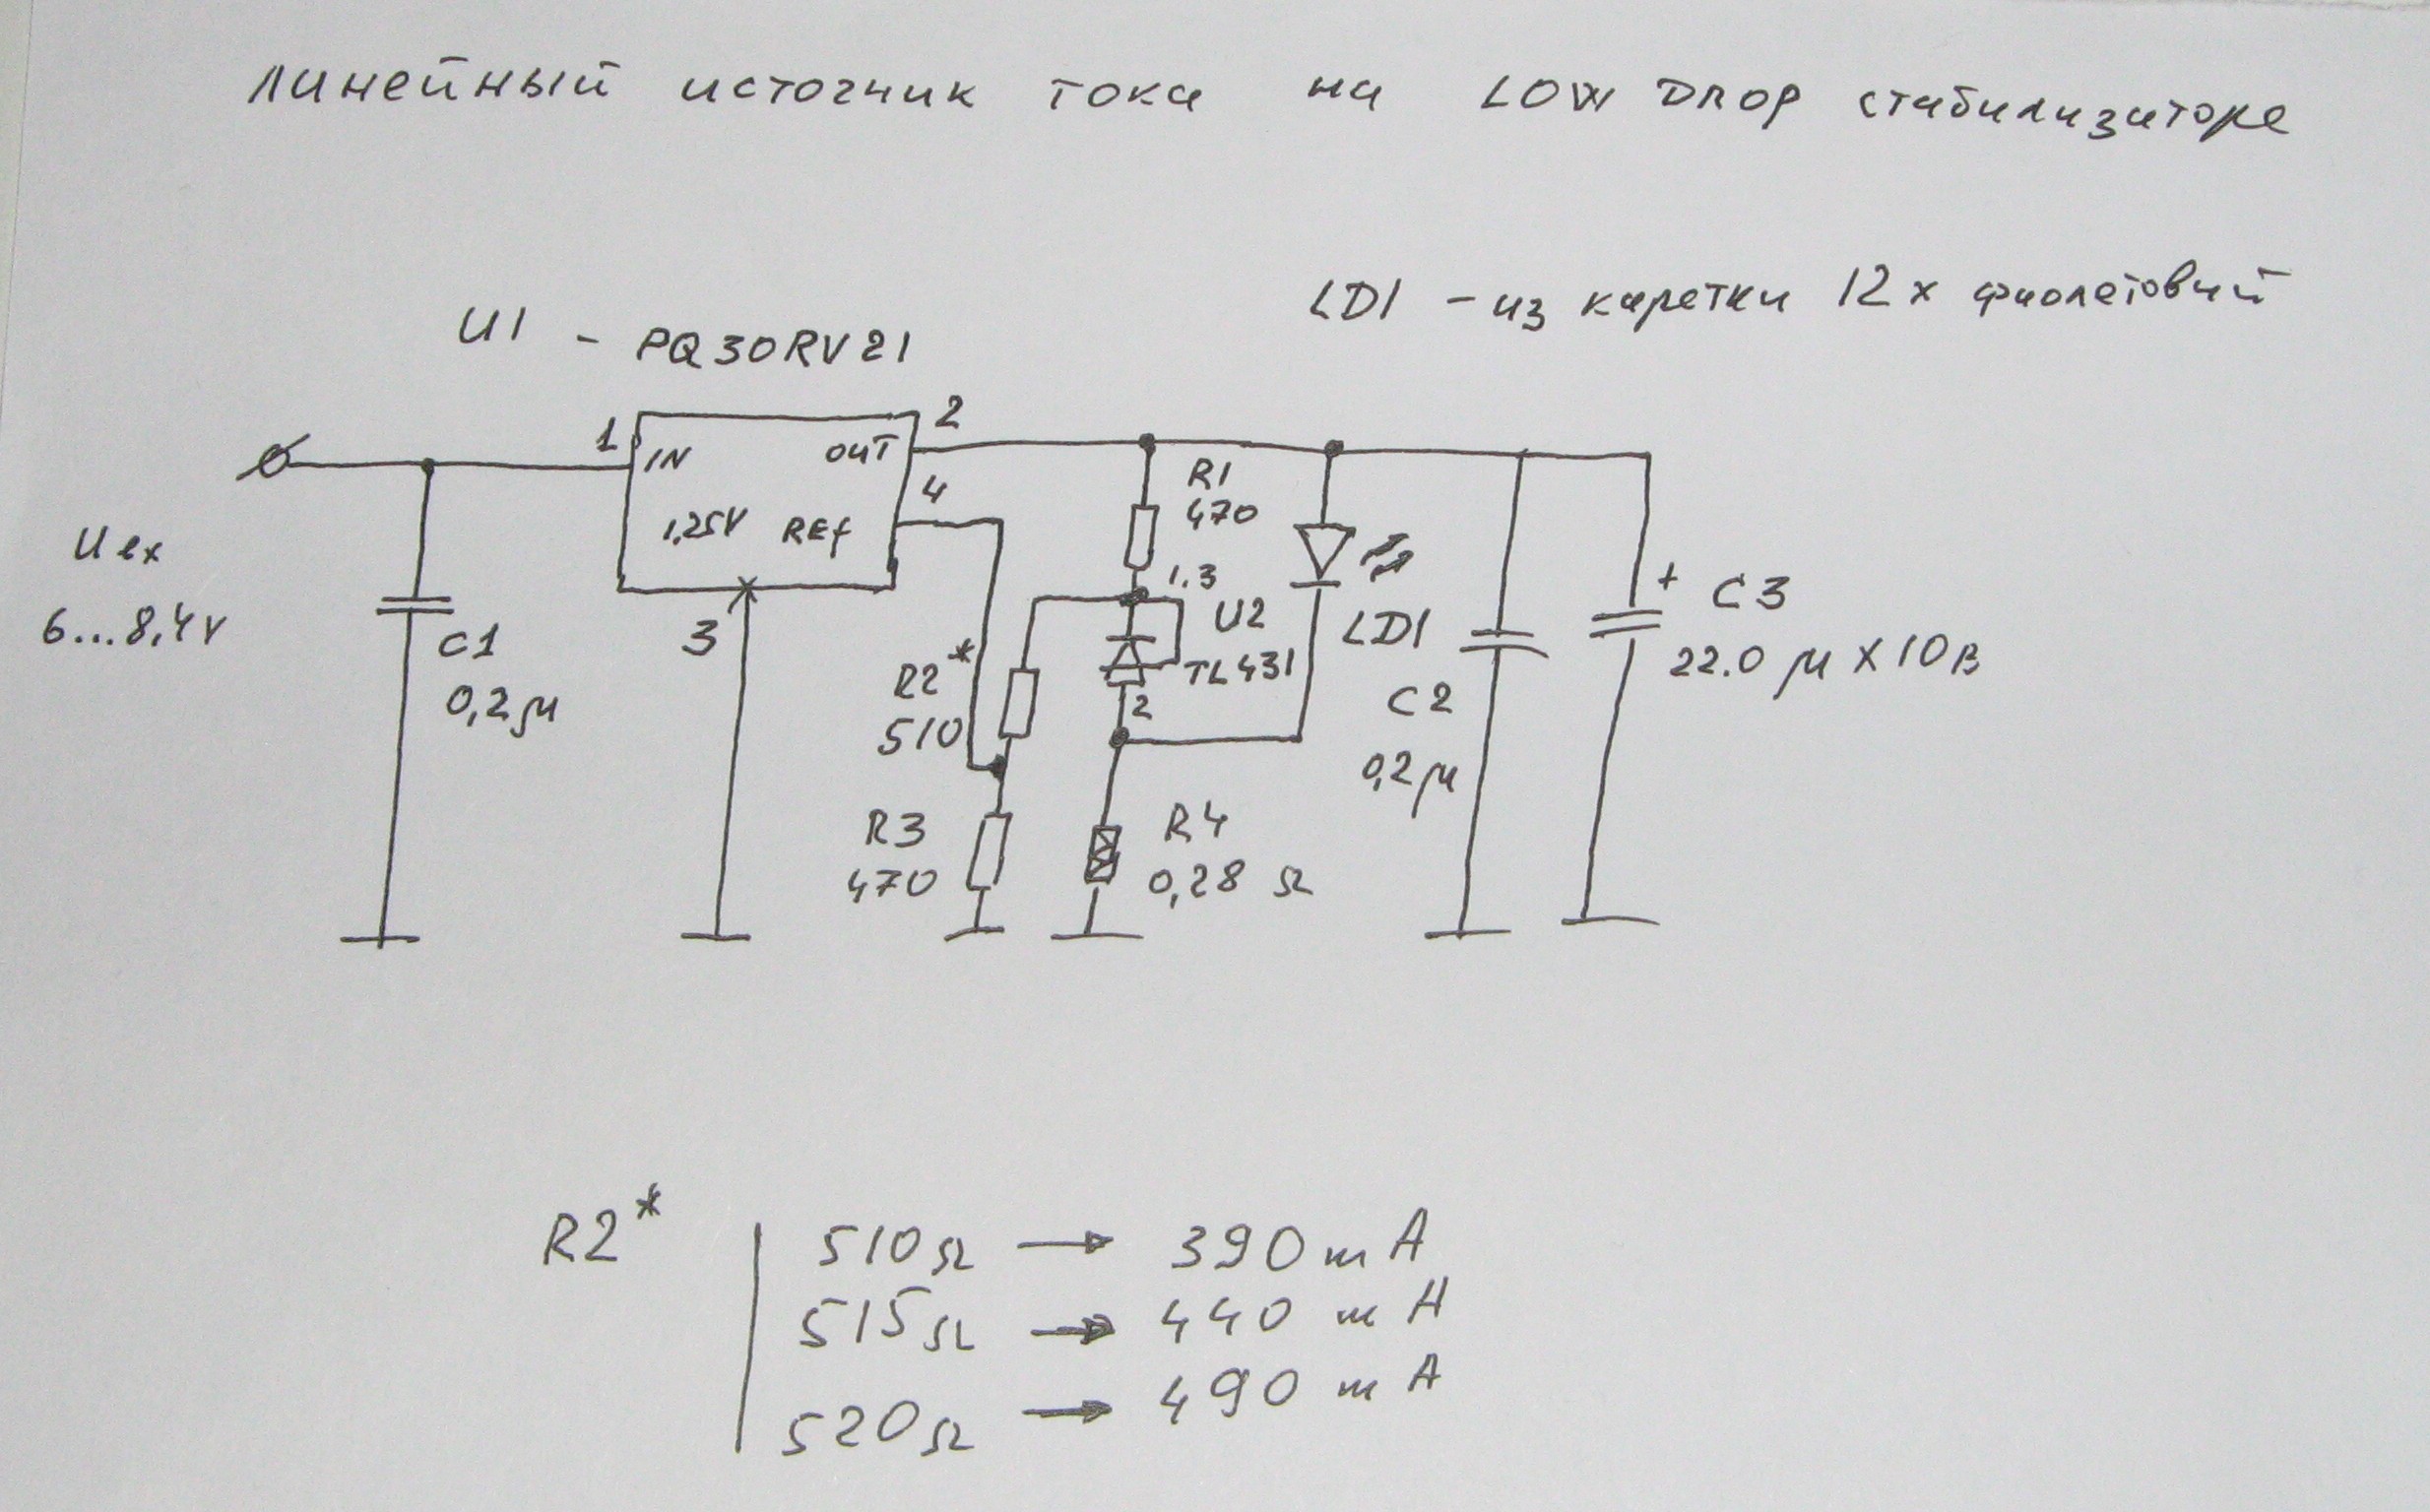 линейный источник тока на LOW DROP стабилизаторе
LD1 – из каретки 12х фиолетовый
U1 – PQ30RV21
1 IN OUT 2
1,25V REF 4
3
Uвх
6...8,4V
C1
0,2µ
R1
470
1.3
U2
TL431
2
R2*
510
R3
470
R4
0,28 Ω
LD1
C2
0,2µ
+ C3
22.0 µ X 10В
R2*
510Ω → 390 mA
515Ω → 440 mA
520Ω → 490 mA